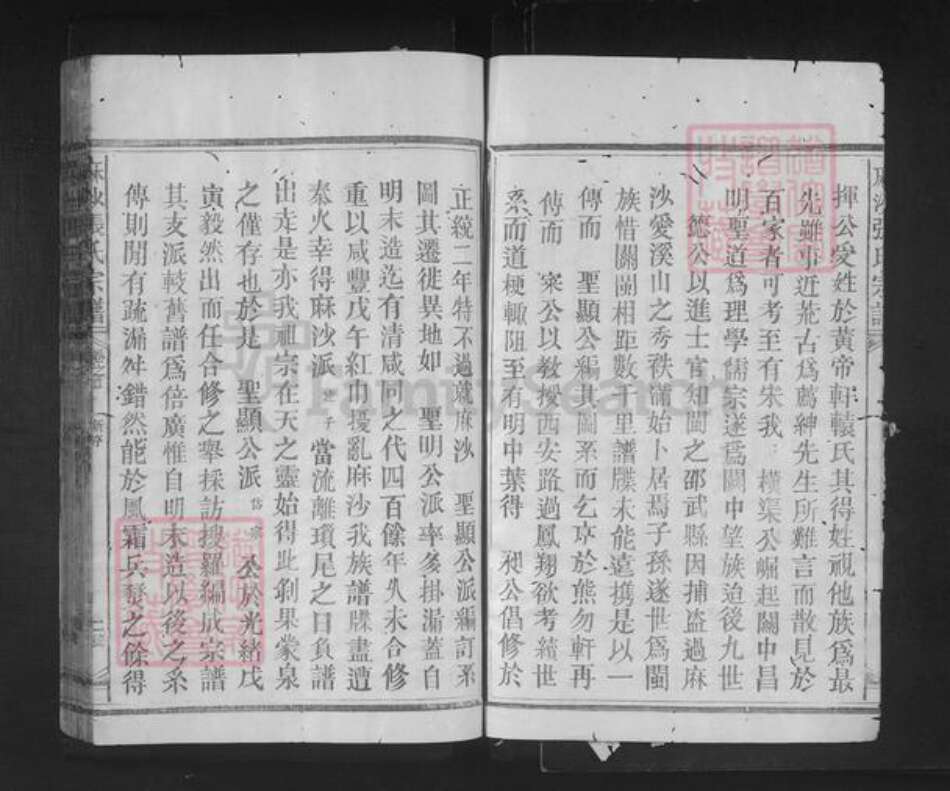 揮公受姓於黃帝軒轅氏其得姓視他族爲最
先雖事近荒古爲薦紳先生所難言而散見於
百家者可考至有宋我 橫渠公崛起關中昌
明聖道爲理學儒宗遂爲關中望族迨後九世
德公以進士官知閩之邵武縣因捕盜過麻
沙愛溪山之秀秩滿始卜居焉子孫遂世爲閩
族惜關閩相距數千里譜牒未能遠携是以一
傳而 聖顯公編其圖系而乞京於熊勿軒再
傳而 寀公以教授西安路過鳳翔欲考績世
系而道梗輙阻至有明中葉得 昶公倡修於
正統二年特不過就麻沙 聖顯公派編訂系
圖其遷徙異地如 聖明公派率多掛漏蓋自
明末造迄有清咸同之代四百餘年久未合修
重以咸豐戊午紅巾擾亂麻沙我族譜牒盡遭
秦火幸得麻沙派 子 當流離瑣尾之日負譜
出走是亦我祖宗在天之靈始得此剩果蒙泉
之僅存也於是 聖顯公派 公於光緒戊
寅毅然出而任合修之舉採訪搜羅編成宗譜
其支派較舊譜爲倍廣惟自明末造以後之系
傳則閒有疏漏舛錯然能於風霜兵燹之餘得
麻沙張氏宗譜
FamilySearch